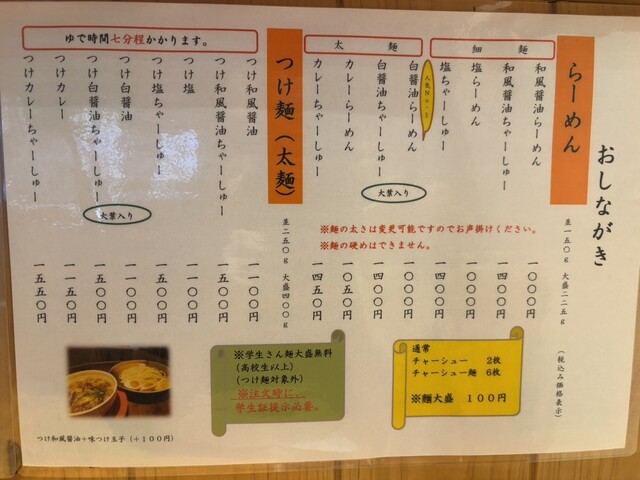 おしながき
(税込み価格表示)
らーめん
並一五〇g 大盛二二五g
細麺
和風醤油らーめん 一〇〇〇円
和風醤油ちゃーしゅー 一四〇〇円
塩らーめん 一〇〇〇円
塩ちゃーしゅー 一四〇〇円
太麺
人気No.1
白醤油らーめん 一〇〇〇円
白醤油ちゃーしゅー 一四〇〇円
大葉入り
カレーらーめん 一〇五〇円
カレーちゃーしゅー 一四五〇円
※麺の太さは変更可能ですのでお声掛けください。
※麺の硬めはできません。
つけ麺(太麺)
並二五〇g 大盛四〇〇g
ゆで時間七分程かかります。
つけ和風醤油 一一〇〇円
つけ和風醤油ちゃーしゅー 一五〇〇円
つけ塩 一一〇〇円
つけ塩ちゃーしゅー 一五〇〇円
つけ白醤油 一一〇〇円
つけ白醤油ちゃーしゅー 一五〇〇円
大葉入り
つけカレー 一一五〇円
つけカレーちゃーしゅー 一五五〇円
通常
チャーシュー 2枚
チャーシュー麺 6枚
※麺大盛 100円
※学生さん麺大盛無料
(高校生以上)
(つけ麺対象外)
※注文時に、
学生証提示必要。
つけ和風醤油+味つけ玉子(+100円)